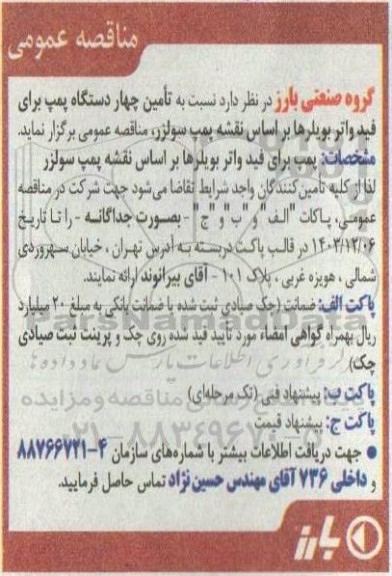 مناقصه عمومی
گروه صنعتی بارز در نظر دارد نسبت به تأمین چهار دستگاه پمپ برای
فید واتر بویلرها بر اساس نقشه پمپ سولزر، مناقصه عمومی برگزار نماید.
مشخصات: پمپ برای فید واتر بویلرها بر اساس نقشه پمپ سولزر
لذا از کلیه تامین کنندگان واجد شرایط تقاضا می شود جهت شرکت در مناقصه
عمومی، پاکات "الف" و "ب" و "ج" - بصورت جداگانه - را تا تاریخ
۱۴۰۲/۱۲/۰۶ در قالب پاکت دربسته به آدرس تهران ، خیابان سهروردی
شمالی ، هویزه غربی ، پلاک ۱۰۱ - آقای بیرانوند ارائه نمایند.
پاکت الف: ضمانت (چک صیادی ثبت شده یا ضمانت بانکی به مبلغ ۲۰ میلیارد
ریال بهمراه گواهی امضاء مورد تایید قید شده روی چک و پرینت ثبت صیادی
چک)
پاکت ب: پیشنهاد فنی (تک مرحله‌ای)
پاکت ج: پیشنهاد قیمت
● جهت دریافت اطلاعات بیشتر با شماره‌های سازمان ۴-۸۸۷۶۶۷۲۱
و داخلی ۷۳۶ آقای مهندس حسین نژاد تماس حاصل فرمایید.
بارز
ParsNamadData
۰۲۱-۸۸۳۴۹۶۷۰